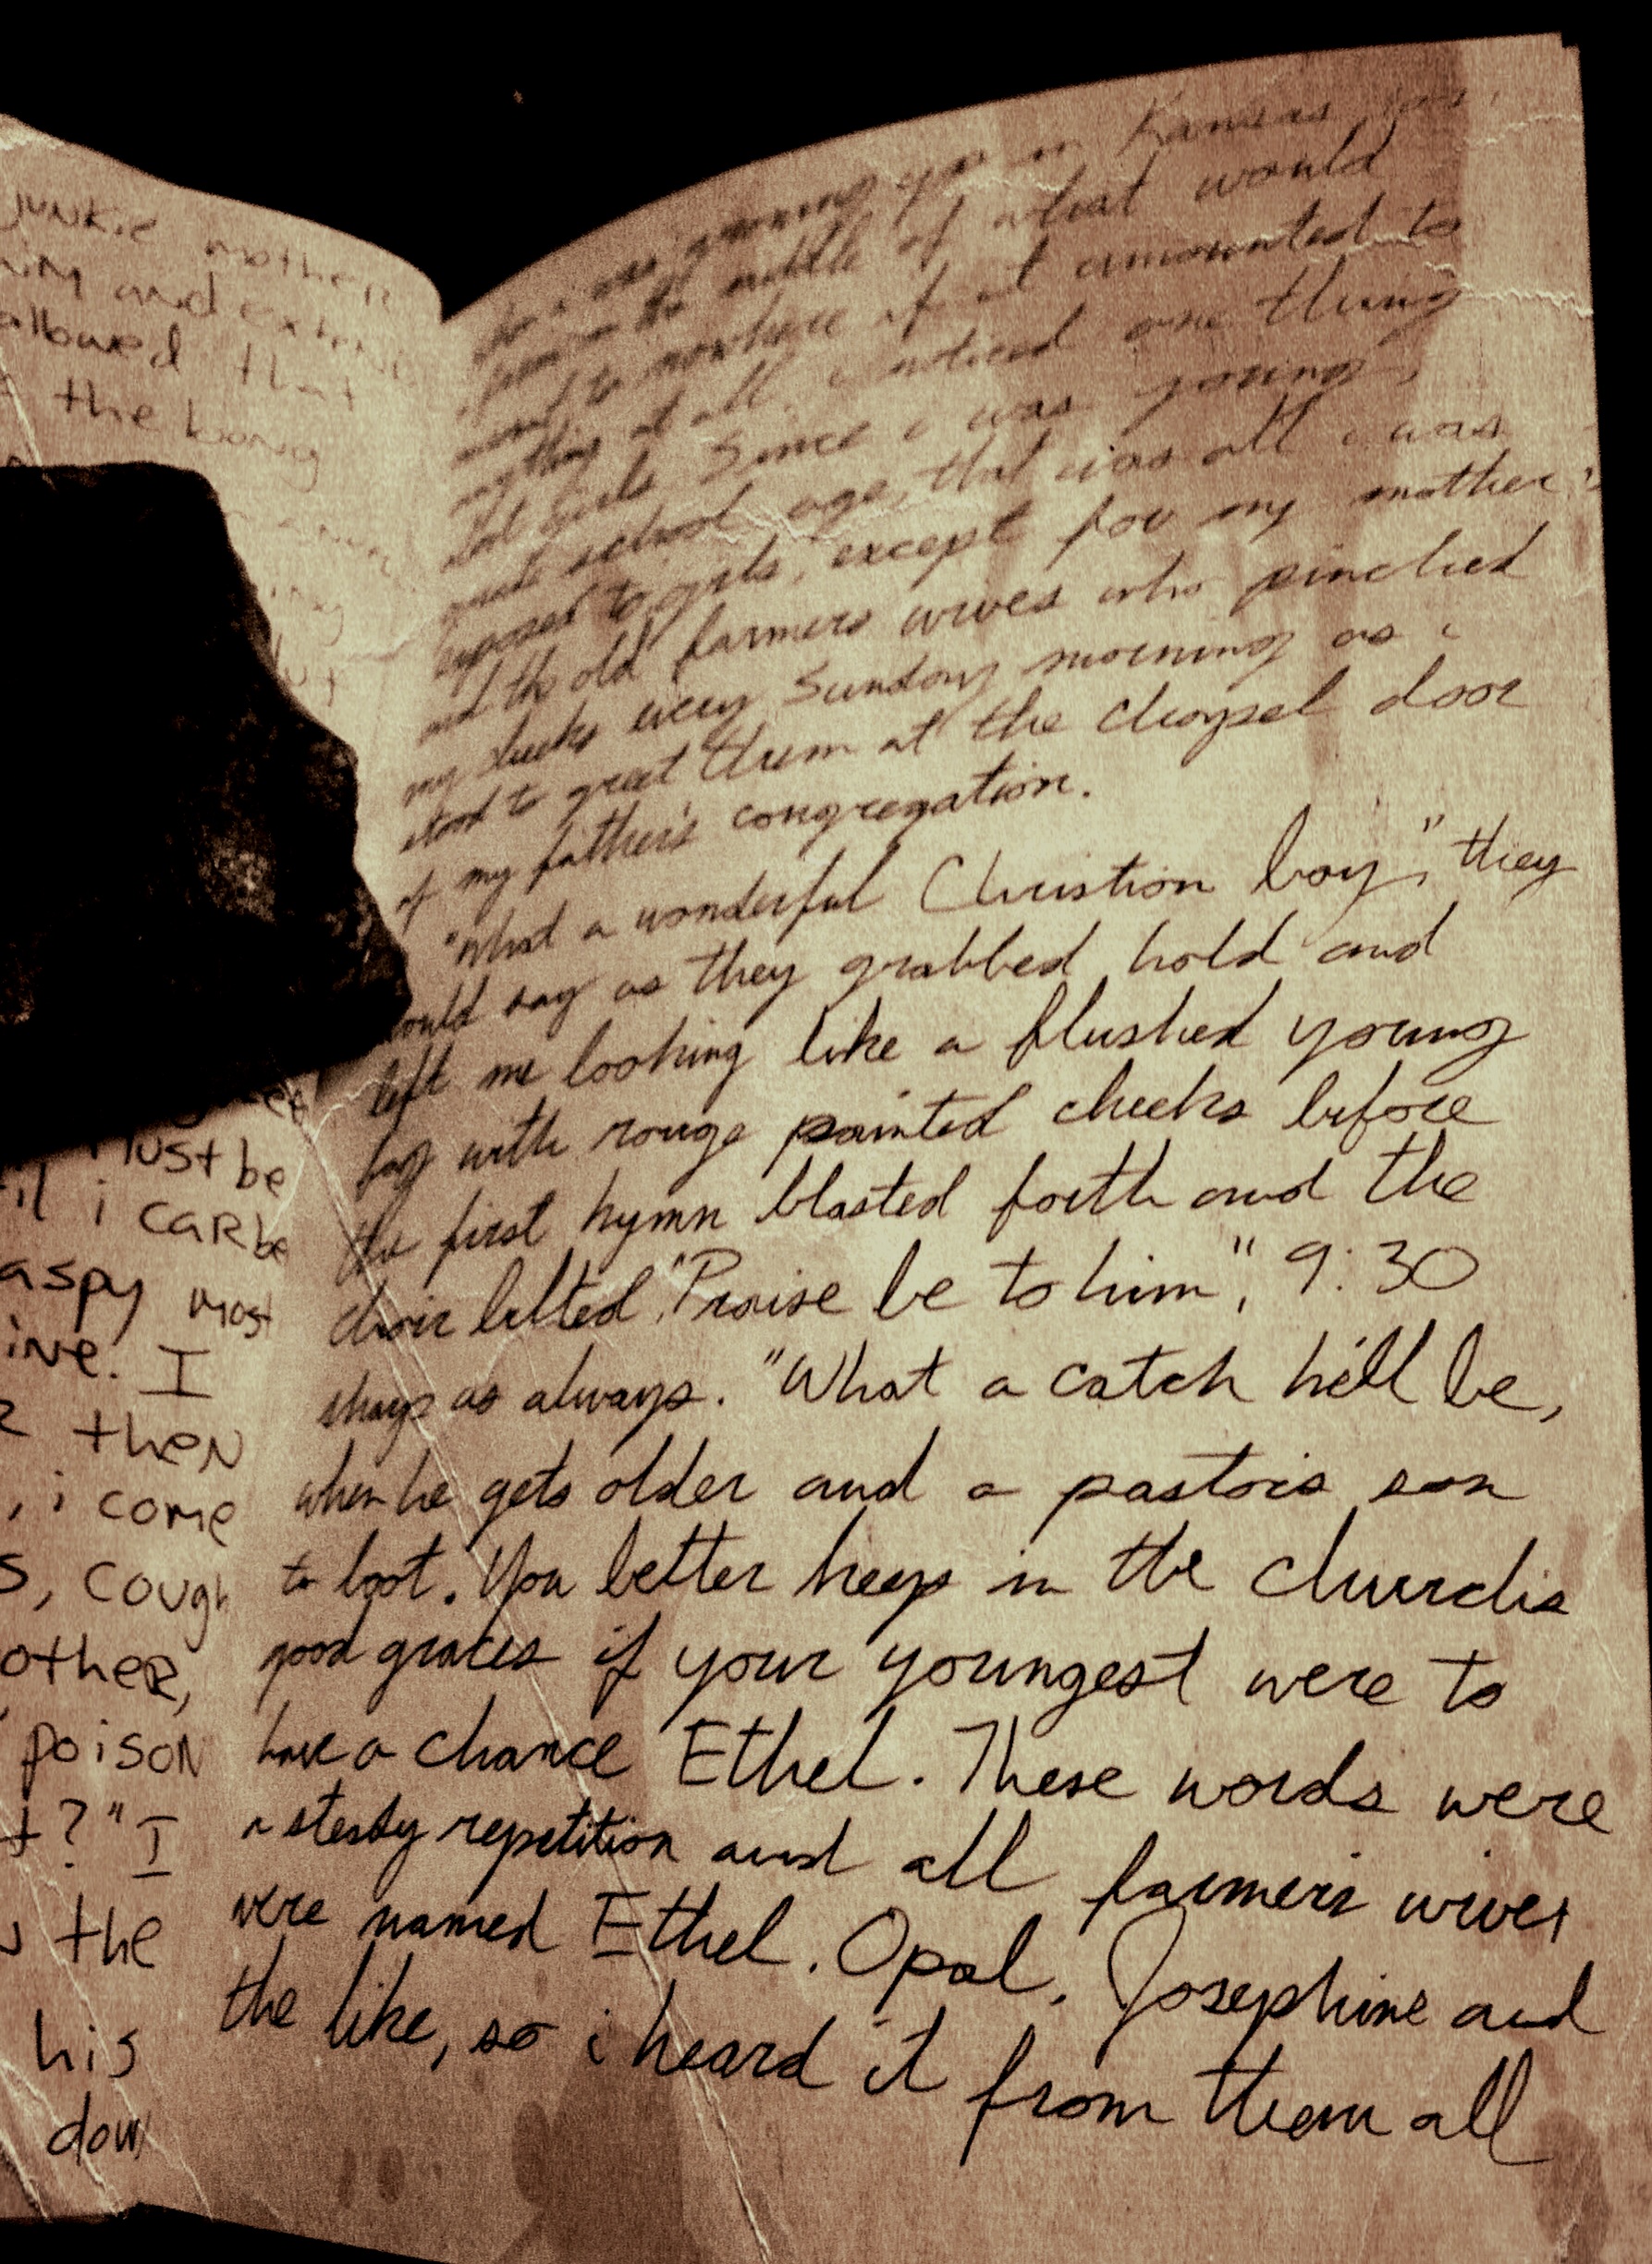 JUNKIE mother
him and
allowed that
the
must be
i CAR be
aspy most
ine. I
then
, i come
s, cough
other,
poison
t?" I
the
his
dow
i was growing up in Kansas
from the middle of what would
to nowhere if it amounted to
anything at all, i noticed one thing
Girls. Since i was young,
school age, that was all i was
exposed to, girls, except for my mother
and the old farmers wives who pinched
my cheeks every Sunday morning as i
stood to greet them at the chapel door
of my father's congregation.
"What a wonderful Christian boy," they
would say as they grabbed hold and
left me looking like a flushed young
fag with rouge painted cheeks before
the first hymn blasted forth and the
choir belted "Praise be to him", 9:30
sharp as always. "What a catch he'll be,
when he gets older and a pastors son
to boot. You better keep in the churchs
good graces if your youngest were to
have a chance Ethel. These words were
a steady repetition and all farmers wives
were named Ethel. Opal, Josephine and
the like, so i heard it from them all